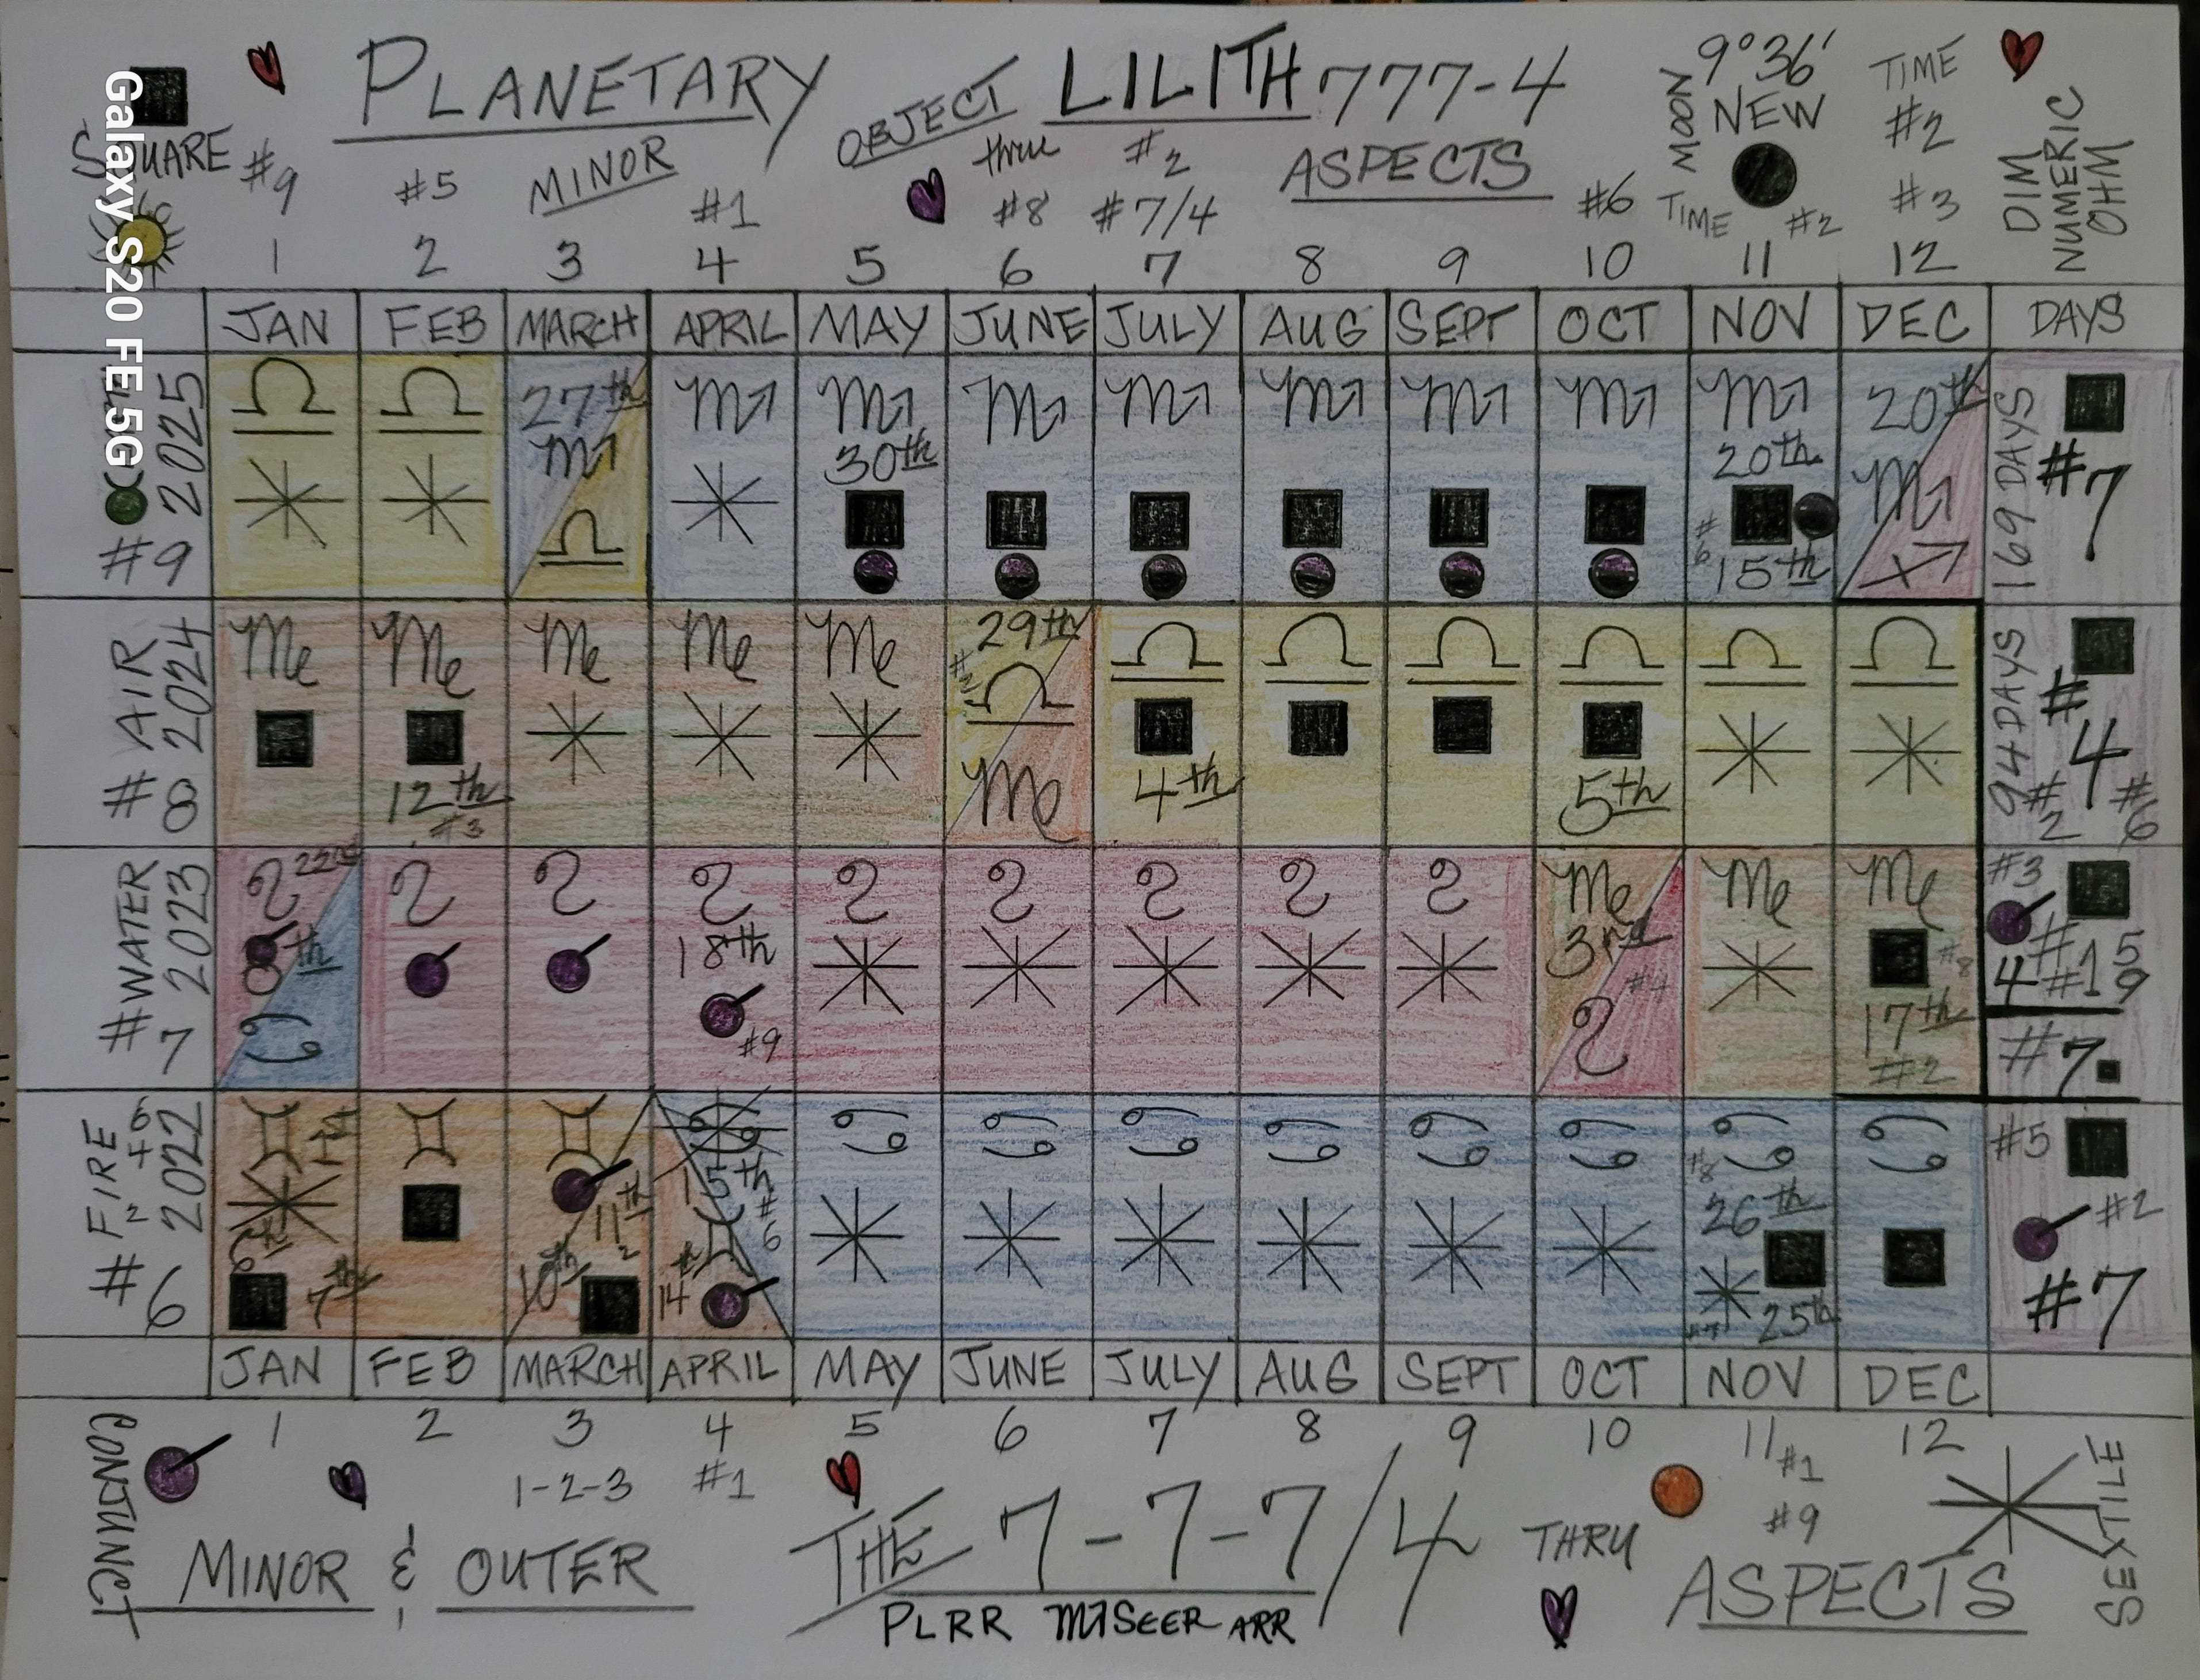 Galaxy S20 FE 5G
SQUARE
#9
PLANETARY
#5
MINOR
#1
OBJECT
LILITH 777-4
thru
#8
#2
#7/4
ASPECTS
#6
MOON
9°36'
NEW
TIME
#2
TIME
#2
#3
DIM
NUMERIC
OHM
1 2 3 4 5 6 7 8 9 10 11 12
JAN FEB MARCH APRIL MAY JUNE JULY AUG SEPT OCT NOV DEC DAYS
2025
#9
♎ ♎ 27th ♏ ♎ ♏ ♏ 30th ♏ ♏ ♏ ♏ ♏ ♏ 20th #6 15th 20th ♏ ♐
169 DAYS
#7
# AIR
8 2024
♍ ♍ 12th #3 ♍ ♍ ♍ 29th #2 ♎ ♍ ♎ 4th ♎ ♎ ♎ 5th ♎ ♎
94 DAYS
#4
#2
#6
#WATER
7 2023
♌ 22nd 8th ♋ ♌ ♌ ♌ 18th #9 ♌ ♌ ♌ ♌ ♌ ♍ 3rd #4 ♌ ♍ ♍ #8 17th #2
#3
#15
4 #19
#7
# FIRE
6 2022
♊ 6th 7th ♊ ♊ 11th 2 10th ♋ 15th #6 ♊ 14th ♋ ♋ ♋ ♋ ♋ ♋ ♋ #8 26th 25th ♋
#5
#2
#7
JAN FEB MARCH APRIL MAY JUNE JULY AUG SEPT OCT NOV DEC
1 2 3 4 5 6 7 8 9 10 11 12
CONJUNCT
1-2-3
#1
#1
#9
MINOR & OUTER
THE 7-7-7/4
THRU
ASPECTS
SEXTILE
PLRR ♏SEER ARR